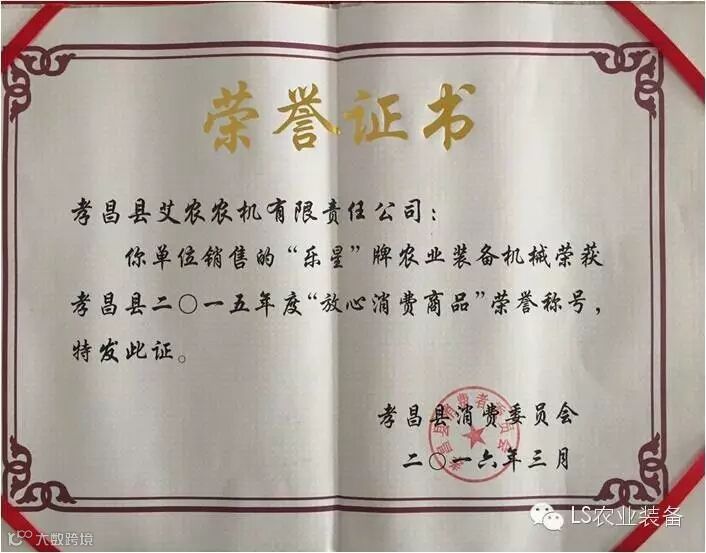 荣誉证书
孝昌县艾农农机有限责任公司：
你单位销售的“乐星”牌农业装备机械荣获
孝昌县二〇一五年度“放心消费商品”荣誉称号，
特发此证。
孝昌县消费委员会
二〇一六年三月
LS农业装备
大数跨境